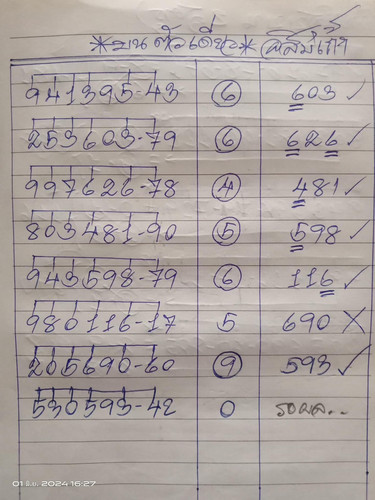 *บนตัวเดียว* พิสมัเก้า
941395-43 6 603 ✓
253603-79 6 626 ✓
997626-78 4 481 ✓
803481-90 5 598 ✓
943598-79 6 116 ✓
980116-17 5 690 X
205690-60 9 593 ✓
530593-42 0 รอผล..
01 มิ.ย. 2024 16:27